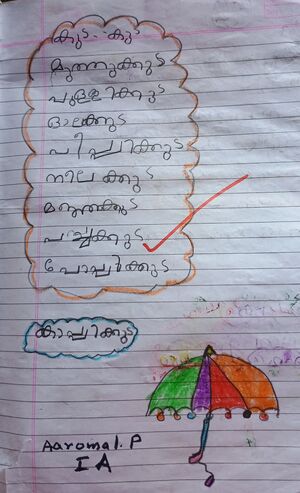 കുട - കുട
മുത്തുക്കുട
പുള്ളിക്കുട
ഓലക്കുട
പീപ്പിക്കുട
നീലക്കുട
മഞ്ഞക്കുട
പച്ചക്കുട
പോപ്പിക്കുട
കാപ്പിക്കുട
Aaromal. P
I A